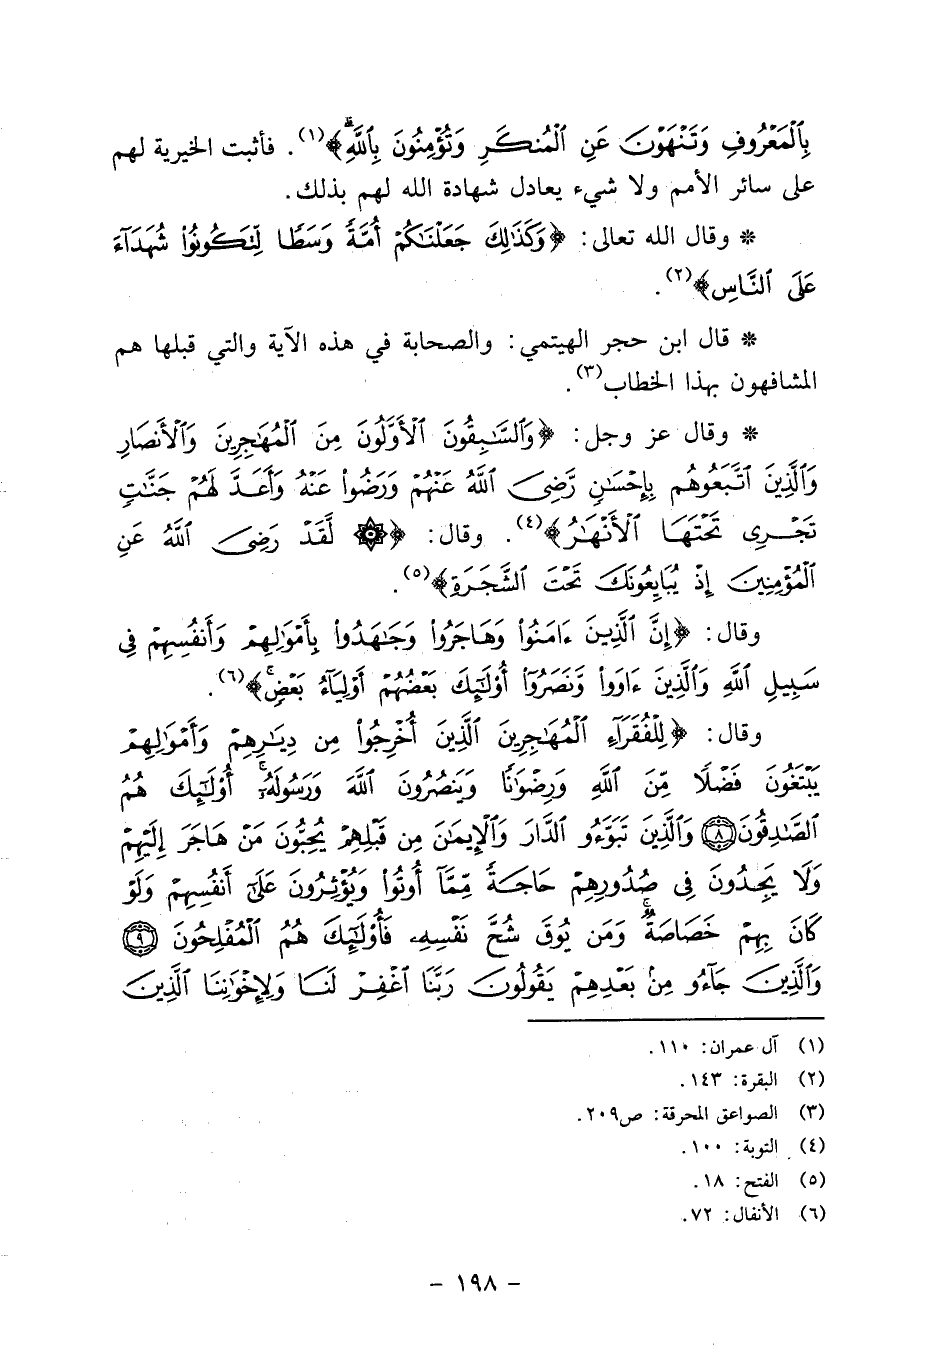 بِٱلْمَعْرُوفِ وَتَنْهَوْنَ عَنِ ٱلْمُنكَرِ وَتُؤْمِنُونَ بِٱللَّهِۗ﴾(١). فأثبت الخيرية لهم
على سائر الأمم ولا شيء يعادل شهادة الله لهم بذلك.
* وقال الله تعالى: ﴿وَكَذَٰلِكَ جَعَلْنَٰكُمْ أُمَّةً وَسَطًا لِّتَكُونُوا۟ شُهَدَآءَ
عَلَى ٱلنَّاسِ﴾(٢).
* قال ابن حجر الهيتمي: والصحابة في هذه الآية والتي قبلها هم
المشافهون بهذا الخطاب(٣).
* وقال عز وجل: ﴿وَٱلسَّٰبِقُونَ ٱلْأَوَّلُونَ مِنَ ٱلْمُهَٰجِرِينَ وَٱلْأَنصَارِ
وَٱلَّذِينَ ٱتَّبَعُوهُم بِإِحْسَٰنٍ رَّضِىَ ٱللَّهُ عَنْهُمْ وَرَضُوا۟ عَنْهُ وَأَعَدَّ لَهُمْ جَنَّٰتٍ
تَجْرِى تَحْتَهَا ٱلْأَنْهَٰرُ﴾(٤). وقال: ﴿۞ لَّقَدْ رَضِىَ ٱللَّهُ عَنِ
ٱلْمُؤْمِنِينَ إِذْ يُبَايِعُونَكَ تَحْتَ ٱلشَّجَرَةِ﴾(٥).
وقال: ﴿إِنَّ ٱلَّذِينَ ءَامَنُوا۟ وَهَاجَرُوا۟ وَجَٰهَدُوا۟ بِأَمْوَٰلِهِمْ وَأَنفُسِهِمْ فِى
سَبِيلِ ٱللَّهِ وَٱلَّذِينَ ءَاوَوا۟ وَّنَصَرُوٓا۟ أُو۟لَٰٓئِكَ بَعْضُهُمْ أَوْلِيَآءُ بَعْضٍۚ﴾(٦).
وقال: ﴿لِلْفُقَرَآءِ ٱلْمُهَٰجِرِينَ ٱلَّذِينَ أُخْرِجُوا۟ مِن دِيَٰرِهِمْ وَأَمْوَٰلِهِمْ
يَبْتَغُونَ فَضْلًا مِّنَ ٱللَّهِ وَرِضْوَٰنًا وَيَنصُرُونَ ٱللَّهَ وَرَسُولَهُۥٓۚ أُو۟لَٰٓئِكَ هُمُ
ٱلصَّٰدِقُونَ ۝٨ وَٱلَّذِينَ تَبَوَّءُو ٱلدَّارَ وَٱلْإِيمَٰنَ مِن قَبْلِهِمْ يُحِبُّونَ مَنْ هَاجَرَ إِلَيْهِمْ
وَلَا يَجِدُونَ فِى صُدُورِهِمْ حَاجَةً مِّمَّآ أُوتُوا۟ وَيُؤْثِرُونَ عَلَىٰٓ أَنفُسِهِمْ وَلَوْ
كَانَ بِهِمْ خَصَاصَةٌۚ وَمَن يُوقَ شُحَّ نَفْسِهِۦ فَأُو۟لَٰٓئِكَ هُمُ ٱلْمُفْلِحُونَ ۝٩
وَٱلَّذِينَ جَآءُو مِنۢ بَعْدِهِمْ يَقُولُونَ رَبَّنَا ٱغْفِرْ لَنَا وَلِإِخْوَٰنِنَا ٱلَّذِينَ
(١) آل عمران: ١١٠.
(٢) البقرة: ١٤٣.
(٣) الصواعق المحرقة: ص٢٠٩.
(٤) التوبة: ١٠٠.
(٥) الفتح: ١٨.
(٦) الأنفال: ٧٢.
- ١٩٨ -